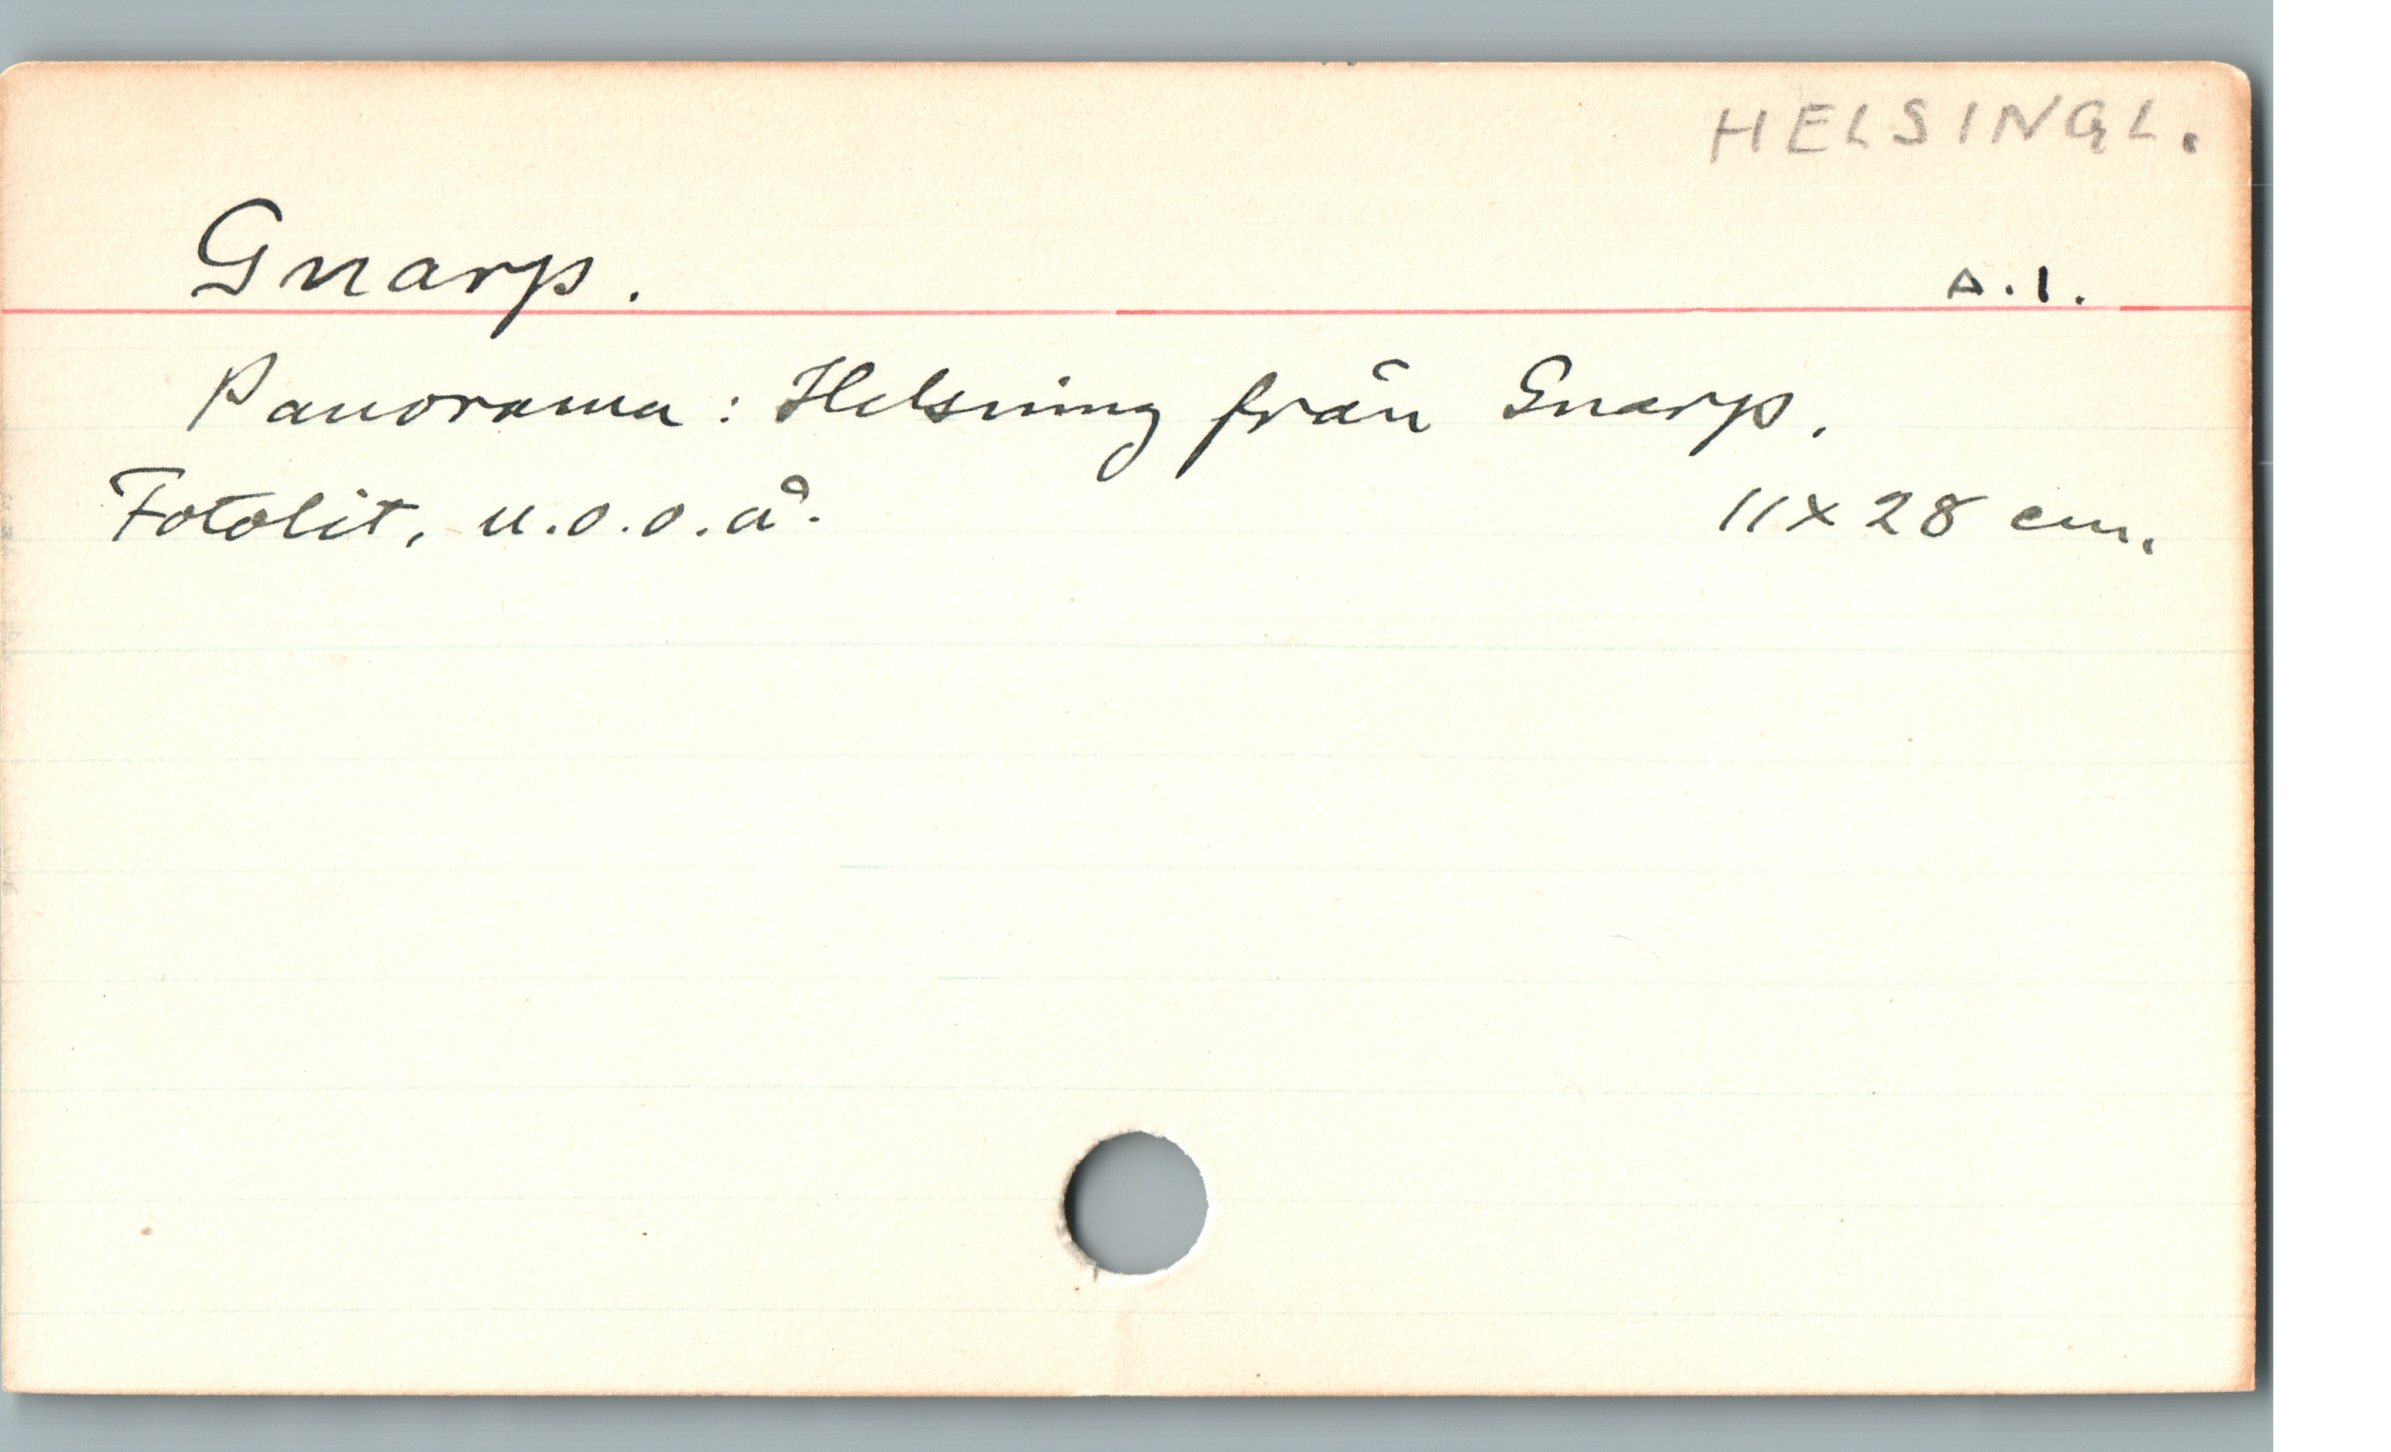 HELSINGL.
Gnarp. A.1.
Panorama: Helsning från Gnarp.
Fotolit, u.o.o.å. 11x28 cm.